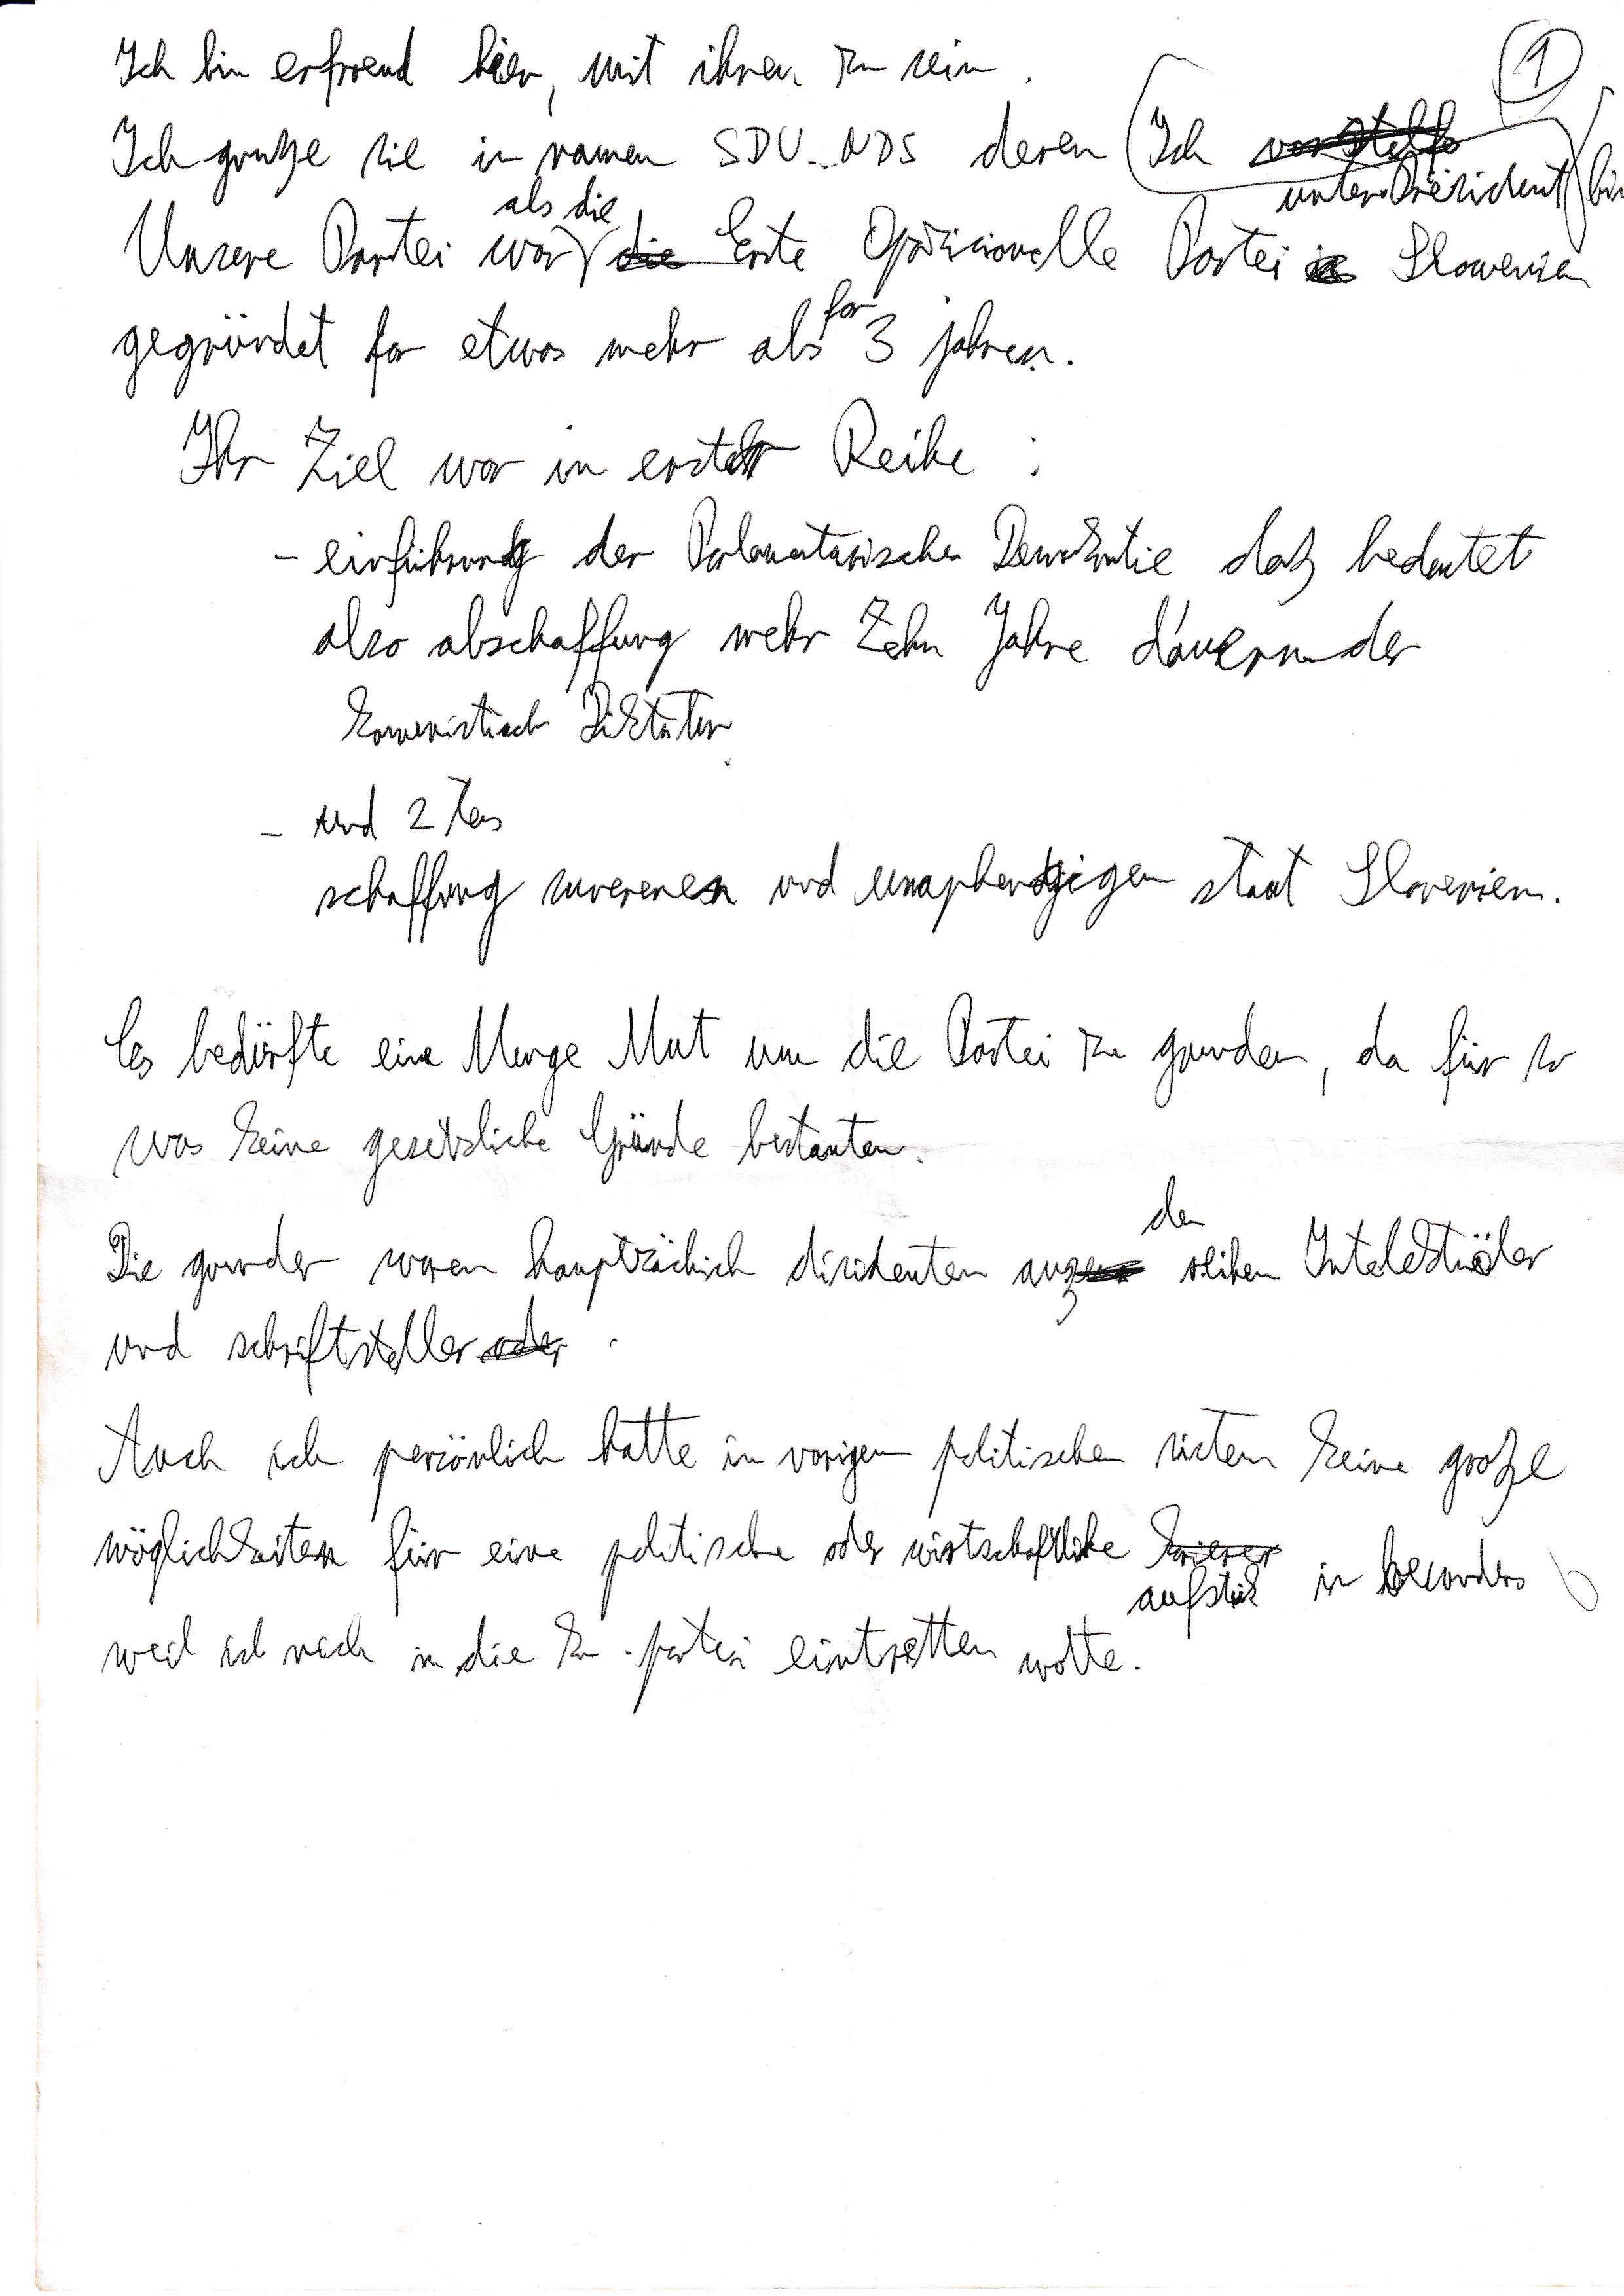 1
Ich bin erfreud hier, mit ihnen zu sein.
Ich gruße sie in namen SDU-NDS deren (Ich unterPräsident) bin
Unsere Partei war als die Erste Opozicionelle Partei Slowenien
gegründet for etwas mehr als for 3 jahren.
Ihr Ziel war in erster Reihe :
- einführung der Parlamentarischen Demokratie daß bedeutet
also abschaffung mehr Zehn Jahre dauernder
komunistisch Diktatur
- und 2 tens
schaffung suverenen und unaphengigen staat Slovenien.
Es bedürfte eine Menge Mut um die Partei zu grunden, da für so
was keine gesetzliche Gründe bestanten.
Die grunder waren hauptsächich disidenten aus den reihen Intelektüeler
und schriftsteller.
Auch ich persönlich hatte in vorigem politischen sistem keine große
möglichkeiten für eine politische oder wirtschaftliche aufstik in besonders
weil ich nich in die K. partei eintretten wolte.